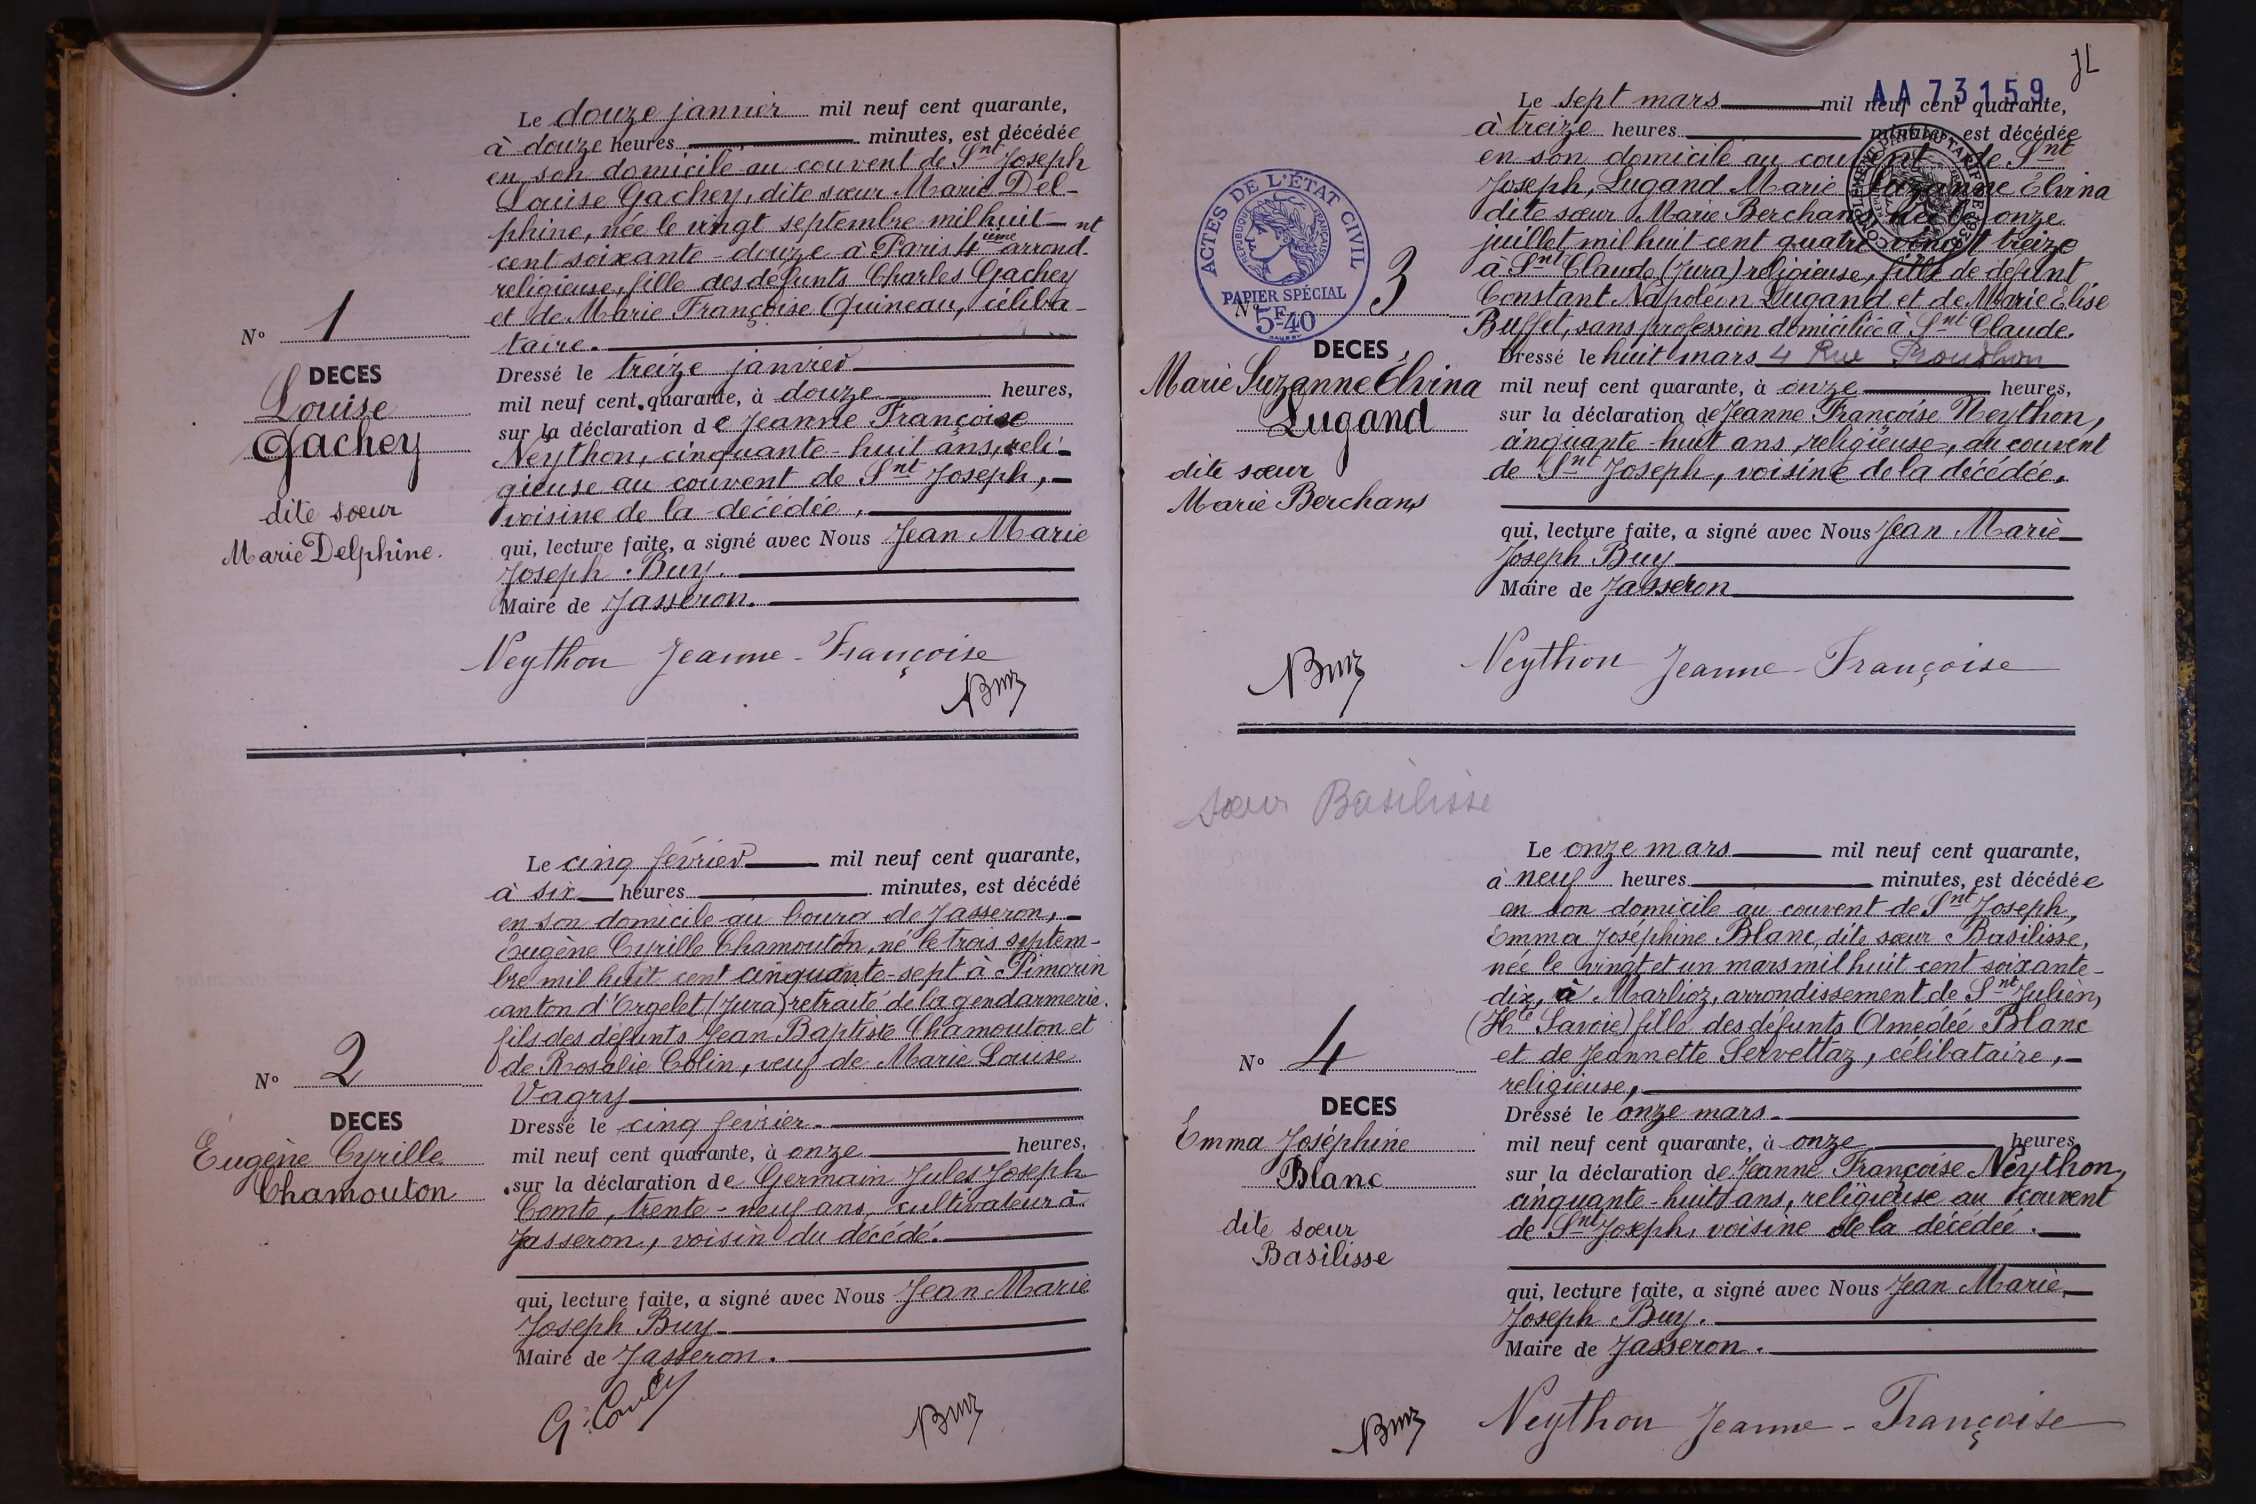 Le douze janvier mil neuf cent quarante,
à douze heures minutes, est décédée
en son domicile au couvent de Snt Joseph
Louise Gachey, dite sœur Marie Del-
phine, née le vingt septembre mil huit nt
cent soixante-douze à Paris 4ième arrond.
religieuse, fille des défunts Charles Gachey
et de Marie Françoise Quineau, céliba-
taire.
N° 1
DECES
Louise
Gachey
dite sœur
Marie Delphine.
Dressé le treize janvier
mil neuf cent quarante, à douze heures,
sur la déclaration de Jeanne Françoise
Neython, cinquante-huit ans, reli-
gieuse au couvent de Snt Joseph,
voisine de la décédée,
qui, lecture faite, a signé avec Nous Jean Marie
Joseph Buy.
Maire de Jasseron.
Neython Jeanne-Françoise
Buy
Le cinq février mil neuf cent quarante,
à six heures minutes, est décédé
en son domicile au bourg de Jasseron,
Eugène Cyrille Chamouton, né le trois septem-
bre mil huit cent cinquante-sept à Pimorin
canton d'Orgelet (Jura) retraité de la gendarmerie.
fils des défunts Jean Baptiste Chamouton et
de Rosalie Colin, veuf de Marie Louise
Vagry
N° 2
DECES
Eugène Cyrille
Chamouton
Dressé le cinq février.
mil neuf cent quarante, à onze heures,
sur la déclaration de Germain Jules Joseph
Comte, trente-neuf ans, cultivateur à
Jasseron, voisin du décédé.
qui, lecture faite, a signé avec Nous Jean Marie
Joseph Buy
Maire de Jasseron.
Buy
AA 73159
Le sept mars mil neuf cent quarante,
à treize heures minutes, est décédée
en son domicile au couvent de Snt
Joseph, Lugand Marie Suzanne Élvina
dite sœur Marie Berchans, née le onze
juillet mil huit cent quatre vingt treize
à Snt Claude (Jura) religieuse, fille de défunt
Constant Napoléon Lugand et de Marie Elise
Buffet, sans profession domiciliée à Snt Claude.
ACTES DE L'ÉTAT CIVIL
RÉPUBLIQUE FRANÇAISE
PAPIER SPÉCIAL
5F40
N° 3
DECES
Marie Suzanne Élvina
Lugand
dite sœur
Marie Berchans
Dressé le huit mars 4 Rue Proudhon
mil neuf cent quarante, à onze heures,
sur la déclaration de Jeanne Françoise Neython,
cinquante-huit ans, religieuse, au couvent
de Snt Joseph, voisine de la décédée.
qui, lecture faite, a signé avec Nous Jean Marie
Joseph Buy
Maire de Jasseron
Neython Jeanne-Françoise
Buy
sœur Basilisse
Le onze mars mil neuf cent quarante,
à neuf heures minutes, est décédée
en son domicile au couvent de Snt Joseph,
Emma Joséphine Blanc, dite sœur Basilisse,
née le vingt et un mars mil huit cent soixante-
dix, à Marlioz, arrondissement de Snt Julien,
(Hte Savoie) fille des défunts Amedée Blanc
et de Jeannette Servettaz, célibataire,
religieuse,
N° 4
DECES
Emma Joséphine
Blanc
dite sœur
Basilisse
Dressé le onze mars.
mil neuf cent quarante, à onze heures,
sur la déclaration de Jeanne Françoise Neython,
cinquante-huit ans, religieuse au couvent
de Snt Joseph, voisine de la décédée.
qui, lecture faite, a signé avec Nous Jean Marie
Joseph Buy.
Maire de Jasseron.
Neython Jeanne-Françoise
Buy